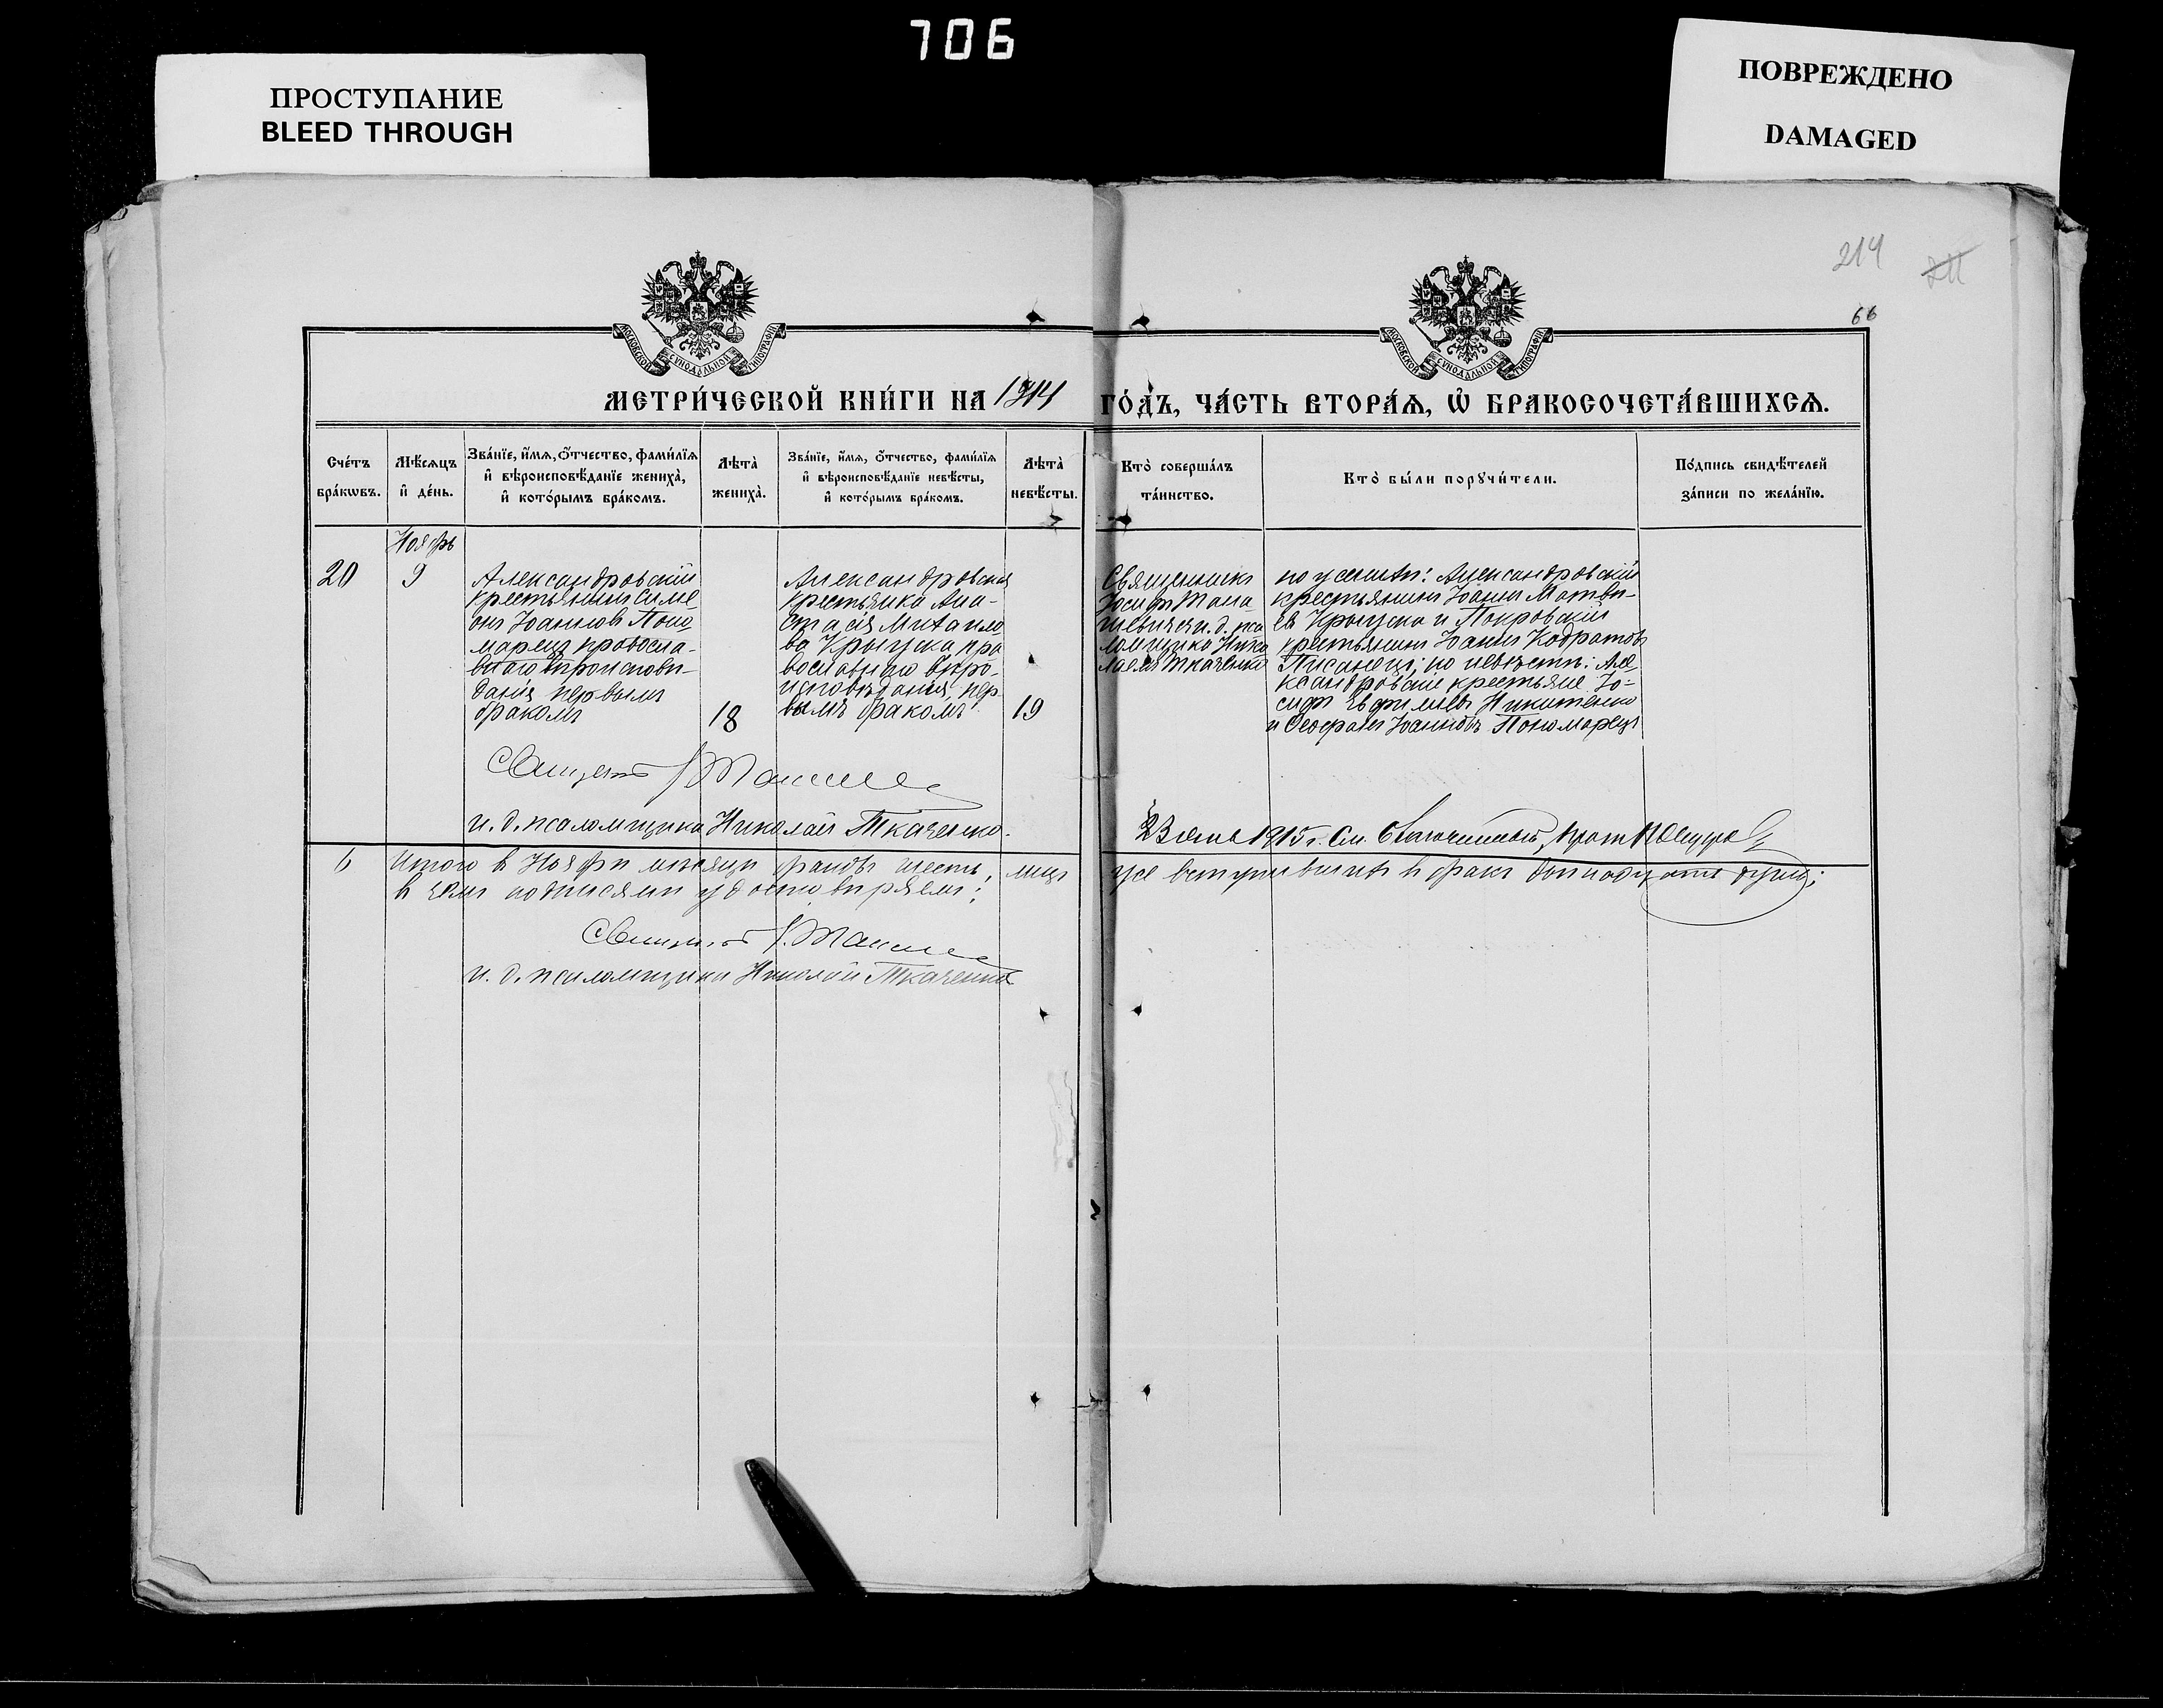 706
ПРОСТУПАНИЕ
BLEED THROUGH
ПОВРЕЖДЕНО
DAMAGED
214
211
66
МОСКОВСКОЙ СѴНОДАЛЬНОЙ ТИПОГРАФІИ
МОСКОВСКОЙ СѴНОДАЛЬНОЙ ТИПОГРАФІИ
МЕТРИ́ЧЕСКОЙ КНИ́ГИ НА 1914 ГО́ДЪ, ЧА́СТЬ ВТОРА́Ѧ, Ѡ҆ БРАКОСОЧЕТА́ВШИХСѦ.
Сче́тъ
бра́кѡвъ.
Мѣ́сѧцъ
и҆ де́нь.
Зва́нїе, и҆́мѧ, о҆́тчество, фами́лїѧ
и҆ вѣроисповѣ́данїе жениха̀,
и҆ кото́рымъ бра́комъ.
Лѣта̀
жениха̀.
Зва́нїе, и҆́мѧ, о҆́тчество, фами́лїѧ
и҆ вѣроисповѣ́данїе невѣ́сты,
и҆ кото́рымъ бра́комъ.
Лѣта̀
невѣ́сты.
Кто̀ соверша́лъ
та́инство.
Кто̀ бы́ли порꙋчи́тели.
По́дпись свидѣ́телей
за́писи по жела́нїю.
Ноябрь
20
9
Александровскій
крестьянинъ Симе
онъ Іоанновъ Поно
марецъ православ-
наго вѣроисповѣ-
данія первымъ
бракомъ
18
Александровская
крестьянка Ана-
стасія Михаило
ва Крыуска пра
вославнаго вѣро-
исповѣданія, пер
вымъ бракомъ
19
Священникъ
Іосифъ Тана
шевичъ и. д. пса
ломщика Нико
лаемъ Ткаченко
по женихѣ: Александровскій
крестьянинъ Іоаннъ Матвѣ-
евъ Крыуска и Покровскій
крестьянинъ Іоаннъ Кодратовъ
Писанецъ; по невѣстѣ: Але
ксандровскіе крестьяне Іо-
сифъ Евфимовъ Никитенко
и Ѳеофанъ Іоанновъ Пономарецъ
Священникъ І.
и. д. псаломщика Николай Ткаченко.
23 1915 г. См. Благочинный, Прот.
6
Итого въ Ноябрѣ мѣсяцѣ браковъ шесть, лицъ же вступившихъ въ бракъ двѣнадцать душъ;
въ чемъ подписями удостовѣряемъ:
Священникъ І.
и. д. псаломщика Николай Ткаченко